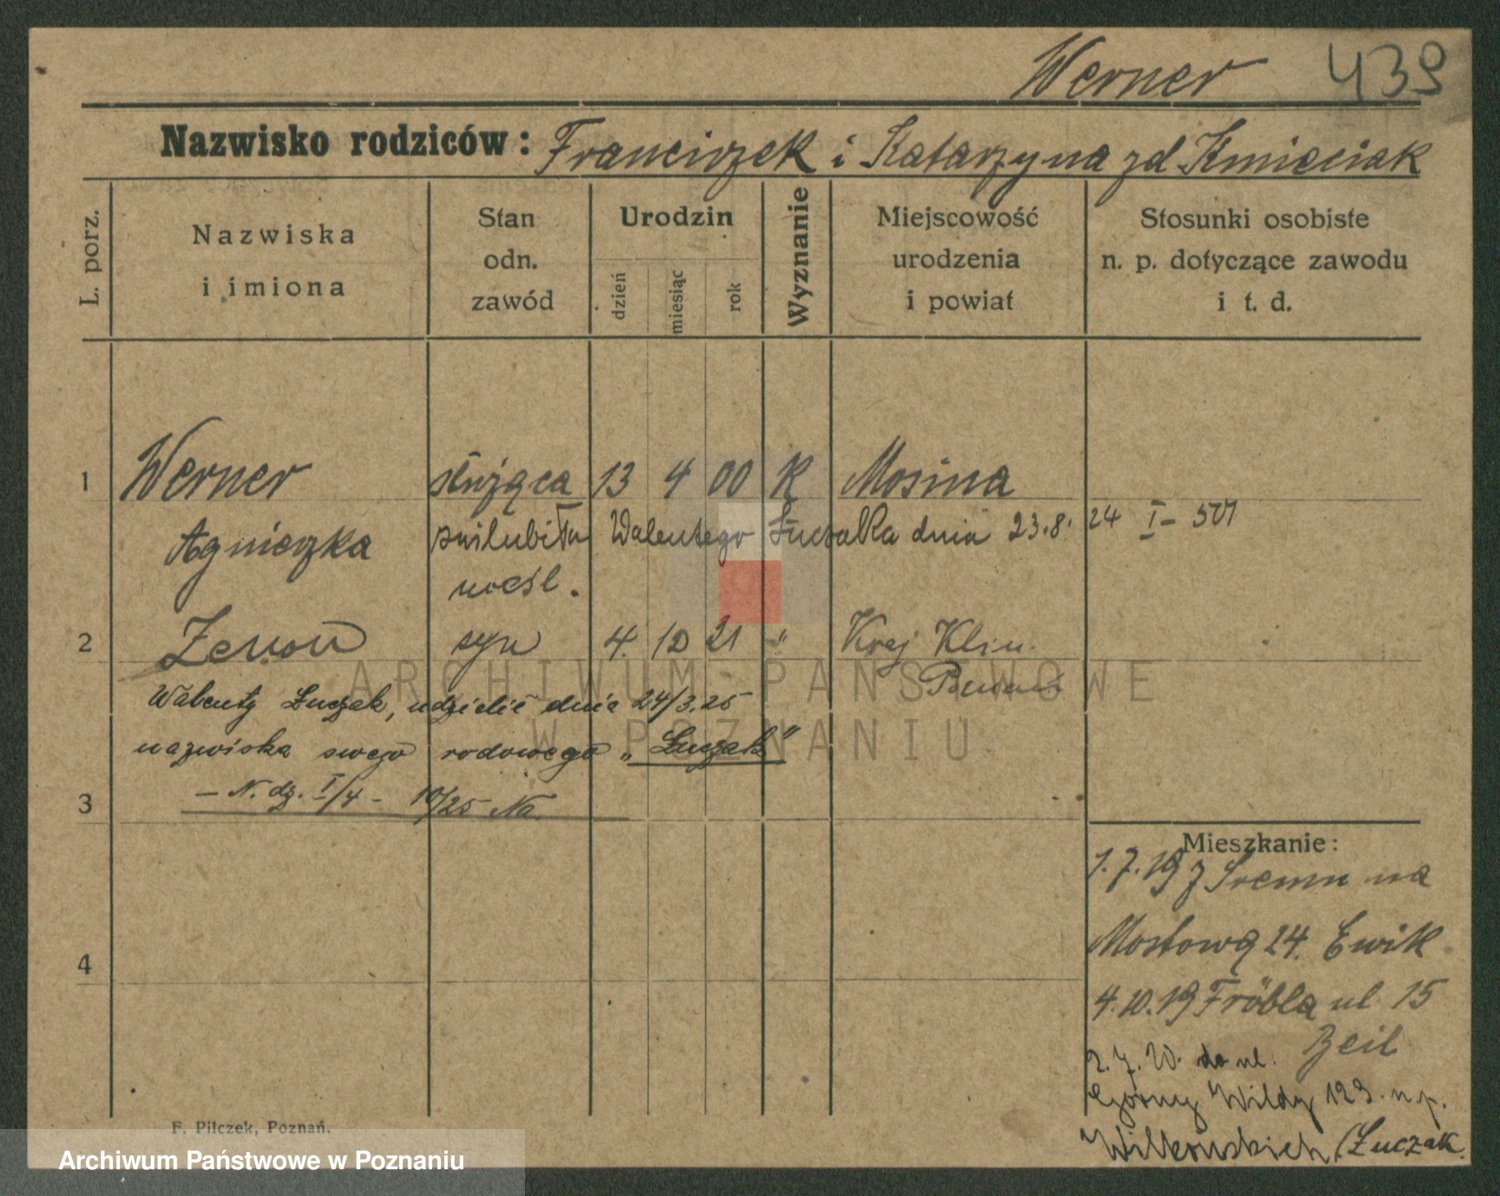 Werner 439
Nazwisko rodziców: Franciszek i Katarzyna zd Kmieciak
L. porz.
Nazwiska
i imiona
Stan
odn.
zawód
Urodzin
dzień
miesiąc
rok
Wyznanie
Miejscowość
urodzenia
i powiat
Stosunki osobiste
n. p. dotyczące zawodu
i t. d.
1 Werner służąca 13 4 00 K Mosina
Agnieszka zaślubiła Walentego Łuczaka dnia 23.8. 24 I - 501
nieśl.
2 Zenon syn 4. 10 21 " Kraj Klin.
Poznań
Walenty Łuczak, udzielił dnia 24/3.25
nazwiska swego rodowego „Łuczak"
- N. dz. I/4 - 10/25 Na
3
4
Mieszkanie:
1.7.19 z Śremu na
Mostową 24. Ewik
4.10.19 Fröbla ul 15
Beil
2.7.20. do ul.
Górny Wildy 123. n p.
Wilkońskich (Łuczak.
F. Pilczek, Poznań.
ARCHIWUM PAŃSTWOWE
W POZNANIU
Archiwum Państwowe w Poznaniu